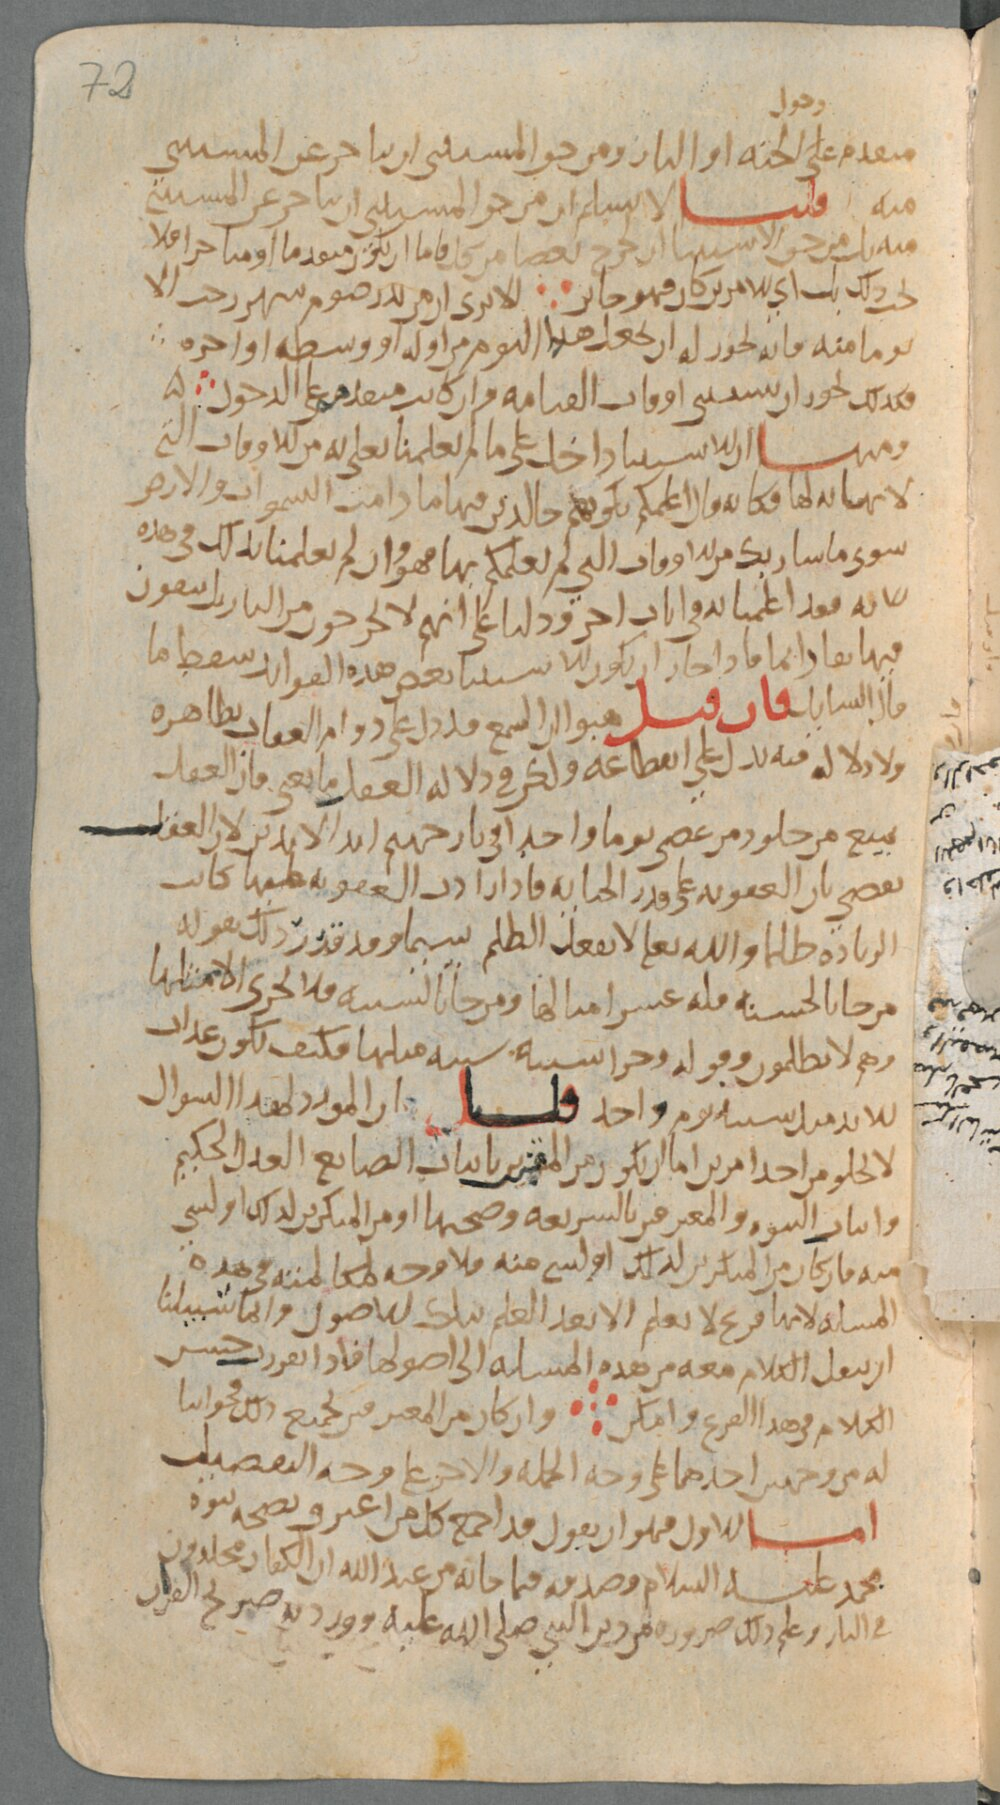 72
دخول
متقدم على الجنه او النار ومن حق المستثنى ان يتاخر عن المستثنى
منه قلنا لا نسلم ان من حق المستثنى ان يتاخر عن المستثنى
منه بل من حق الاستثنا ان يخرج بعضا من كل فاما ان يكون متقدما او متاخرا فلا
يجب ذلك بل اي الامرين كان فهو جايز الا ترى ان من نذر صوم شهر رجب الا
يوما منه فانه يجوز له ان يجعل هذا اليوم من اوله او وسطه او اخره
فكذلك يجوز ان يستثنى اوقات القيامه وان كانت متقدمه على الدخول ه
ومنها ان الاستثنا داخل على ما لم يعلمنا تعالى به من الاوقات التي
لا نهايه لها فكانه قال اعلمكم بكونهم خالدين فيها ما دامت السموات والارض
سوى ما شا ربك من الاوقات التي لم يعلمكم بها فهو وان لم يعلمنا بذلك في هذه
الايه فقد اعلمنا به في ايات اخر ودلنا على انهم لا يخرجون من النار بل يبقون
فيها بقا دايما فاذا جاز ان يكون للاستثنا بعض هذه الفوايد سقط ما
قال السايل فان قيل هبوا ان السمع قد دل على دوام العقاب بظاهره
ولا دلاله فيه تدل على انقطاعه ولكن في دلاله العقل ما يغني فان العقل
يمنع من خلود من عصى يوما واحدا في نار جهنم ابد الابدين لان العقل
يقضي بان العقوبه على قدر الجنايه فاذا زادت العقوبه عليها كانت
الزياده ظلما والله تعالى لا يفعل الظلم سيما وقد قدر ذلك بقوله
من جا بالحسنه فله عشر امثالها ومن جا بالسيئه فلا يجزى الا مثلها
وهم لا يظلمون وقوله وجزا سيئه سيئه مثلها فكيف يكون عذاب
الابد مثل سيئه يوم واحد قلنا ان المورد لهذا السوال
لا يخلو من احد امرين اما ان يكون من المقرين باثبات الصانع العدل الحكيم
واثبات النبوه والمعترفين بالشريعه وصحتها او من المنكرين لذلك او لشي
منه فان كان من المنكرين لذلك او لشي منه فلا وجه لمكالمته في هذه
المسله لانها فرع لا يعلم الا بعد العلم بتلك الاصول وانما سبيلنا
ان ننقل الكلام معه من هذه المسله الى اصولها فاذا تقررت حسن
الكلام في هذا الفرع وامكن وان كان من المعترفين بجميع ذلك فجوابنا
له من وجهين احدهما على وجه الجمله والاخر على وجه التفصيل
اما الاول فهو ان يقول قد اجمع كل من اعترف بصحه نبوه
محمد عليه السلام وصدقه فيما جا به من عند الله ان الكفار مخلدون
في النار وعلم ذلك ضروره من دين النبي صلى الله عليه وورد به صريح القران